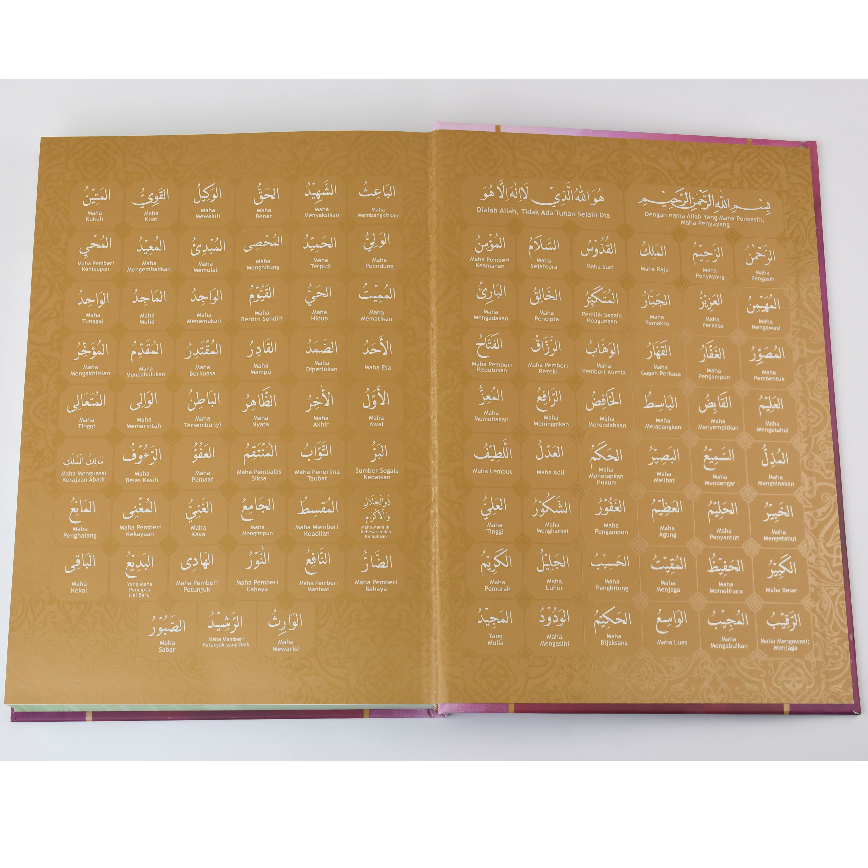 بِسْمِ اللهِ الرَّحْمٰنِ الرَّحِيْمِ
Dengan nama Allah Yang Maha Pengasih,
Maha Penyayang
هُوَ اللهُ الَّذِيْ لَا اِلٰهَ اِلَّا هُوَ
Dialah Allah, Tidak Ada Tuhan Selain Dia
الرَّحْمٰنُ الرَّحِيْمُ المَلِكُ القُدُّوْسُ السَّلَامُ المُؤْمِنُ
Maha Pengasih Maha Penyayang Maha Raja Maha Suci Maha Sejahtera Maha Pemberi Keamanan
المُهَيْمِنُ العَزِيْزُ الجَبَّارُ المُتَكَبِّرُ الخَالِقُ البَارِئُ
Maha Mengawasi Maha Perkasa Maha Pemaksa Pemilik Segala Keagungan Maha Pencipta Maha Mengadakan
المُصَوِّرُ الغَفَّارُ القَهَّارُ الوَهَّابُ الرَّزَّاقُ الفَتَّاحُ
Maha Pembentuk Maha Pengampun Maha Gagah Perkasa Maha Pemberi Kurnia Maha Pemberi Rezeki Maha Pemberi Keputusan
العَلِيْمُ القَابِضُ البَاسِطُ الخَافِضُ الرَّافِعُ المُعِزُّ
Maha Mengetahui Maha Menyempitkan Maha Melapangkan Maha Merendahkan Maha Meninggikan Maha Memuliakan
المُذِلُّ السَّمِيْعُ البَصِيْرُ الحَكَمُ العَدْلُ اللَّطِيْفُ
Maha Menghinakan Maha Mendengar Maha Melihat Maha Menetapkan Hukum Maha Adil Maha Lembut
الخَبِيْرُ الحَلِيْمُ العَظِيْمُ الغَفُوْرُ الشَّكُوْرُ العَلِيُّ
Maha Mengetahui Maha Penyantun Maha Agung Maha Pengampun Maha Menghargai Maha Tinggi
الكَبِيْرُ الحَفِيْظُ المُقِيْتُ الحَسِيْبُ الجَلِيْلُ الكَرِيْمُ
Maha Besar Maha Memelihara Maha Menjaga Maha Penghitung Maha Luhur Maha Pemurah
الرَّقِيْبُ المُجِيْبُ الوَاسِعُ الحَكِيْمُ الوَدُوْدُ المَجِيْدُ
Maha Mengawasi; Menjaga Maha Mengabulkan Maha Luas Maha Bijaksana Maha Mengasihi Yang Mulia
البَاعِثُ الشَّهِيْدُ الحَقُّ الوَكِيْلُ القَوِيُّ المَتِيْنُ
Maha Membangkitkan Maha Menyaksikan Maha Benar Maha Mewakili Maha Kuat Maha Kukuh
الوَلِيُّ الحَمِيْدُ المُحْصِى المُبْدِئُ المُعِيْدُ المُحْيِى
Maha Pelindung Maha Terpuji Maha Menghitung Maha Memulai Maha Mengembalikan Maha Pemberi Kehidupan
المُمِيْتُ الحَيُّ القَيُّوْمُ الوَاجِدُ المَاجِدُ الوَاحِدُ
Maha Mematikan Maha Hidup Maha Berdiri Sendiri Maha Menemukan Maha Mulia Maha Tunggal
الأَحَدُ الصَّمَدُ القَادِرُ المُقْتَدِرُ المُقَدِّمُ المُؤَخِّرُ
Maha Esa Maha Diperlukan Maha Mampu Maha Berkuasa Maha Mendahulukan Maha Mengakhirkan
الأَوَّلُ الأَخِرُ الظَّاهِرُ البَاطِنُ الوَالِى المُتَعَالِى
Maha Awal Maha Akhir Maha Nyata Maha Tersembunyi Maha Memerintah Maha Tinggi
البَرُّ التَّوَّابُ المُنْتَقِمُ العَفُوُّ الرَّءُوْفُ مَالِكُ المُلْكِ
Sumber Segala Kebaikan Maha Penerima Taubat Maha Pembalas Siksa Maha Pemaaf Maha Belas Kasih Maha Menguasai Kerajaan Abadi
ذُو الجَلَالِ وَالإِكْرَامِ المُقْسِطُ الجَامِعُ الغَنِيُّ المُغْنِى المَانِعُ
Maha Memberi Keadilan Maha Mengimpun Maha Kaya Maha Pemberi Kekayaan Maha Penghalang
الضَّارُّ النَّافِعُ النُّوْرُ الهَادِى البَدِيْعُ البَاقِى
Maha Pemberi Bahaya Maha Pemberi Manfaat Maha Pemberi Cahaya Maha Pemberi Petunjuk Yang Maha Pencipta Hal Baru Maha Kekal
الوَارِثُ الرَّشِيْدُ الصَّبُوْرُ
Maha Mewarisi Maha Memberi Petunjuk yang Baik Maha Sabar